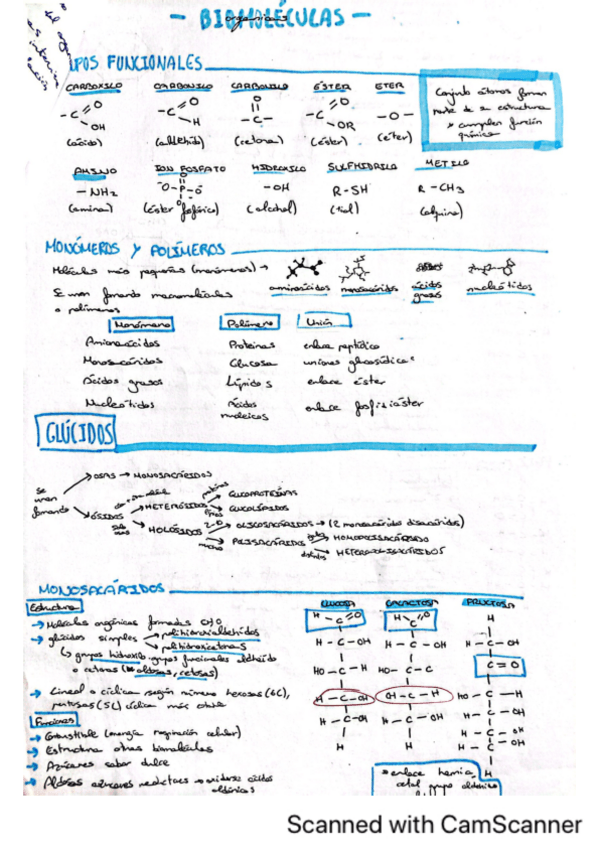 - BIOMOLÉCULAS -
orgánicas
UPOS FUNCIONALES
CARBOXILO CARBONILO CARBONILO ÉSTER ETER
(ácido) (aldehído) (cetona) (éster) (éter)
Conjunto átomos forman
parte de su estructura
y cumplen función
química
AMINO ION FOSFATO HIDROXILO SULFHIDRILO METILO
- NH2 - OH R-SH R-CH3
(amina) (éster fosfórico) (alcohol) (tiol) (alquino)
MONÓMEROS Y POLÍMEROS
Moléculas más pequeñas (monómeros) →
aminoácidos monosacáridos ácidos grasos nucleótidos
Se unen formando macromoléculas
o polímeros
Monómero Polímero Unión
Aminoácidos Proteínas enlace peptídico
Monosacáridos Glucosa uniones glucosídicas
Ácidos grasos Lípidos enlace éster
Nucleótidos Ácidos nucleicos enlace fosfodiéster
GLÚCIDOS
Se unen formando
OSAS → MONOSACÁRIDOS
ÓSIDOS
HETERÓSIDOS
GLUCOPROTEÍNAS
GLUCOLÍPIDOS
HOLÓSIDOS
OLIGOSACÁRIDOS → (2 monosacáridos disacáridos)
POLISACÁRIDOS
HOMOPOLISACÁRIDO
HETEROPOLISACÁRIDOS
MONOSACÁRIDOS
Estructura
→ Moléculas orgánicas formadas CHO
→ glúcidos simples
polihidroxialdehídos
polihidroxicetonas
grupos hidroxilo, grupos funcionales aldehído
o cetonas (aldosas, cetosas)
→ Lineal o cíclica según número hexosas (6C),
pentosas (5C) cíclica más
Funciones
→ Combustible (energía respiración celular)
→ Estructura otras biomoléculas
→ Azúcares sabor dulce
→ Aldosas azúcares reductores → oxidarse ácidos
aldónicos
GLUCOSA GALACTOSA FRUCTOSA
enlace hemia
cetal grupo
Scanned with CamScanner